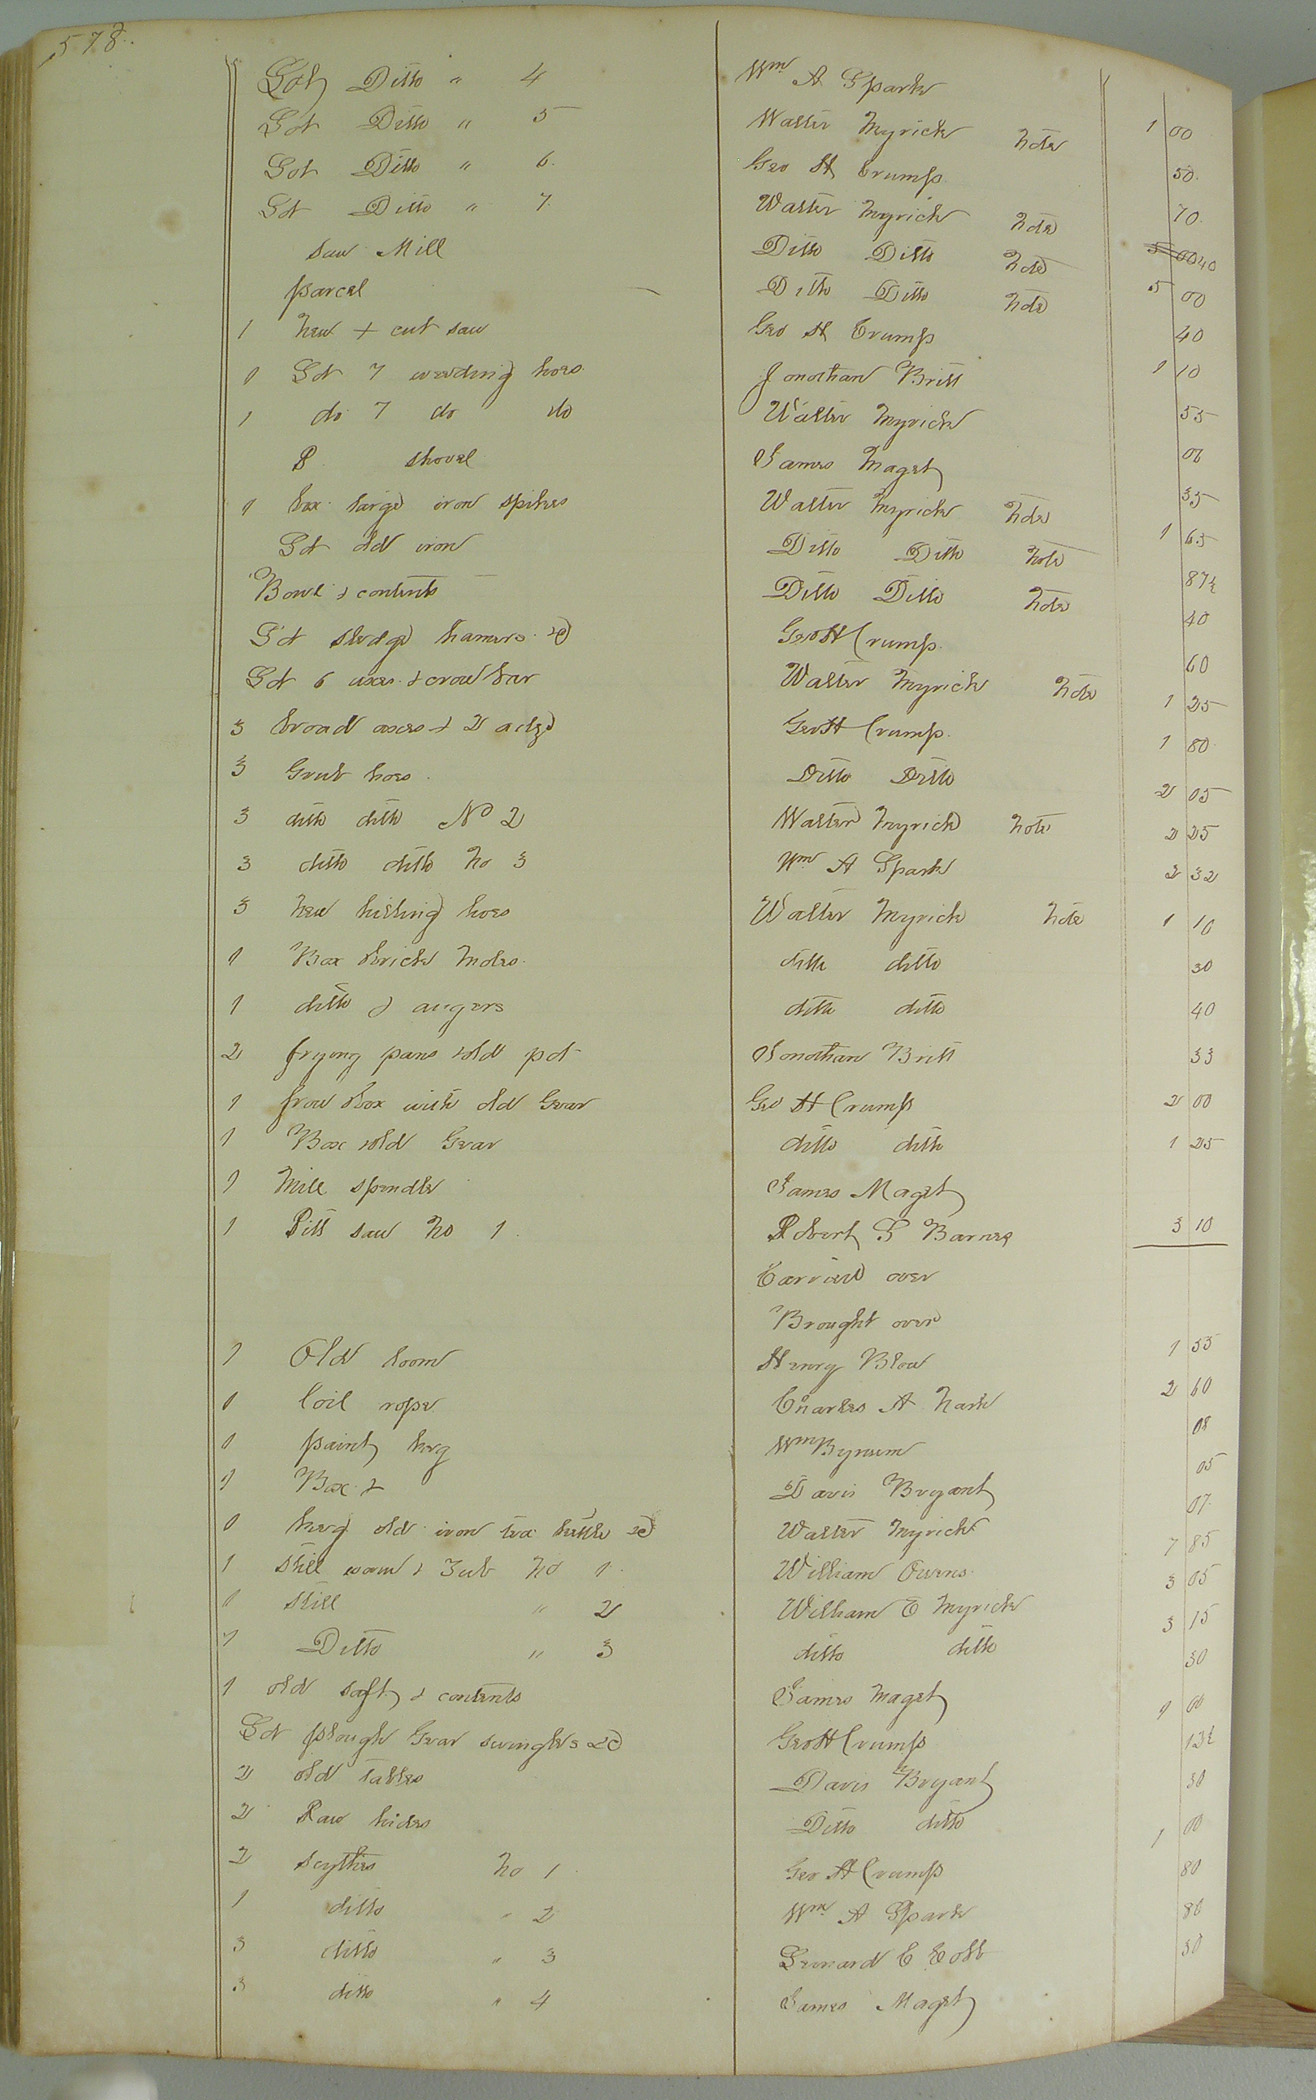 578.
Lot Ditto " 4 Wm A Spark
Lot Ditto " 5 Walter Myrick Note 1 00
Lot Ditto " 6. Geo H Crump 50.
Lot Ditto " 7. Walter Myrick Note 70
saw Mill Ditto Ditto Note 40
parcel Ditto Ditto Note 5 00
1 New + cut saw Geo H Crump 40
1 Lot 7 weeding hoes. Jonothan Britt 1 10
1 do 7 do do Walter Myrick 55
P. shovel James Maget
1 box large iron spikes Walter Myrick Note 35
Lot old iron Ditto Ditto Note 1 65
Bowl & contents Ditto Ditto Note 87½
Lot sledge hamers &c Geo H Crump. 40
Lot 6 axes & crow bar Walter Myrick Note 60
3 broad axes & 2 adze Geo H Crump. 1 25
3 Grub hoes. Ditto Ditto 1 80
3 ditto ditto No 2 Walter Myrick Note 2 05
3 ditto ditto No 3 Wm A Spark 2 25
3 New hilling hoes Walter Myrick Note 2 32
1 Box brick Moles. ditto ditto 1 10
1 ditto & augers ditto ditto 30
2 frying pans & old pot Jonothan Britt 40
1 frow box with old Gear Geo H Crump 33
1 Box & old Gear ditto ditto 2 00
1 Mill spindle James Maget 1 25
1 Pitt saw No 1. Robert S Barnes 3 10
Carried over
Brought over
1 Old loom Henry Blow 1 55
1 Coil rope Charles A Nash 2 60
1 paint keg Wm Bynum 08
1 Box & Davis Bryant 05
1 keg old iron tea kettle &c Walter Myrick 07.
1 still worm & Tub No 1. William Owens. 7 85
1 still " 2 William E Myrick 3 05
1 Ditto " 3 ditto ditto 3 15
1 old saft & contents James Maget 30
Lot plough Gear swingles &c Geo H Crump 1 00
2 old tables Davis Bryant 12½
2 Raw hides Ditto ditto 30
2 scythes No 1. Geo H Crump 1 00
1 ditto " 2 Wm A Spark 80
3 ditto " 3 Lemard C Cobb
3 ditto " 4 James Maget 30